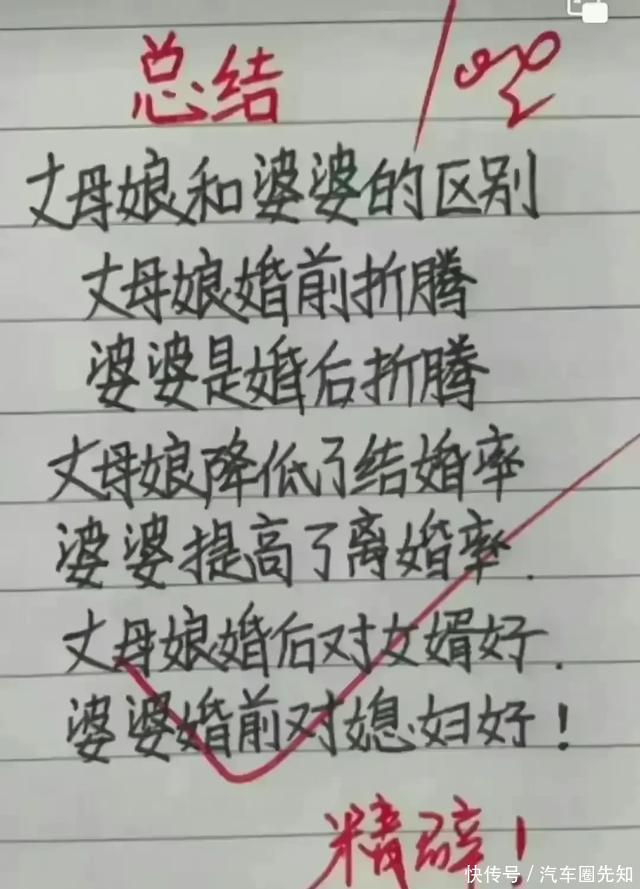 总结
100
丈母娘和婆婆的区别
丈母娘婚前折腾
婆婆是婚后折腾
丈母娘降低了结婚率
婆婆提高了离婚率.
丈母娘婚后对女婿好.
婆婆婚前对媳妇好!
精辟!
快传号/汽车圈先知